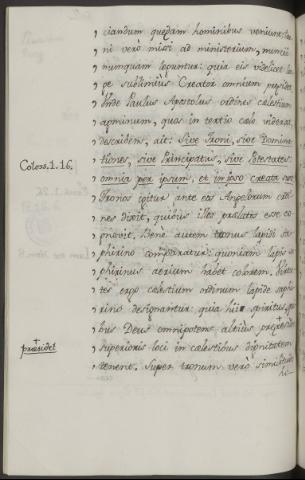 , ciandum quædam hominibus veniunt: cæ
, ni verò missi ad ministerium, nuncii
, nunquam leguntur: quia eis videlicet lon
, ge sublimius Creator omnium præsidet.
, Unde Paulus Apostolus ordines cælestium
, agminum, quos in tertio cælo viderat,
, describens, ait: Sive Troni, sive Domina
Coloss. 1. 16. , tiones, sive Principatus, sive Potestates
, omnia per ipsum, et in ipso creata sunt
, Tronos igitur ante eos Angelorum ordi
, nes dixit, quibus illos prælatos esse co
, gnovit. Bene autem tronus lapidi sa
, phirino comparatur: quoniam lapis sa
, phirinus aerium habet colorem. Virtu
, tes ergo cælestium ordinum lapide saphi
, rino designantur: quia hi spiritus, qui
, bus Deus omnipotens altius præsidet
præsidet , superioris loci in cælestibus dignitatem
, tenent. Super tronum verò similitudo